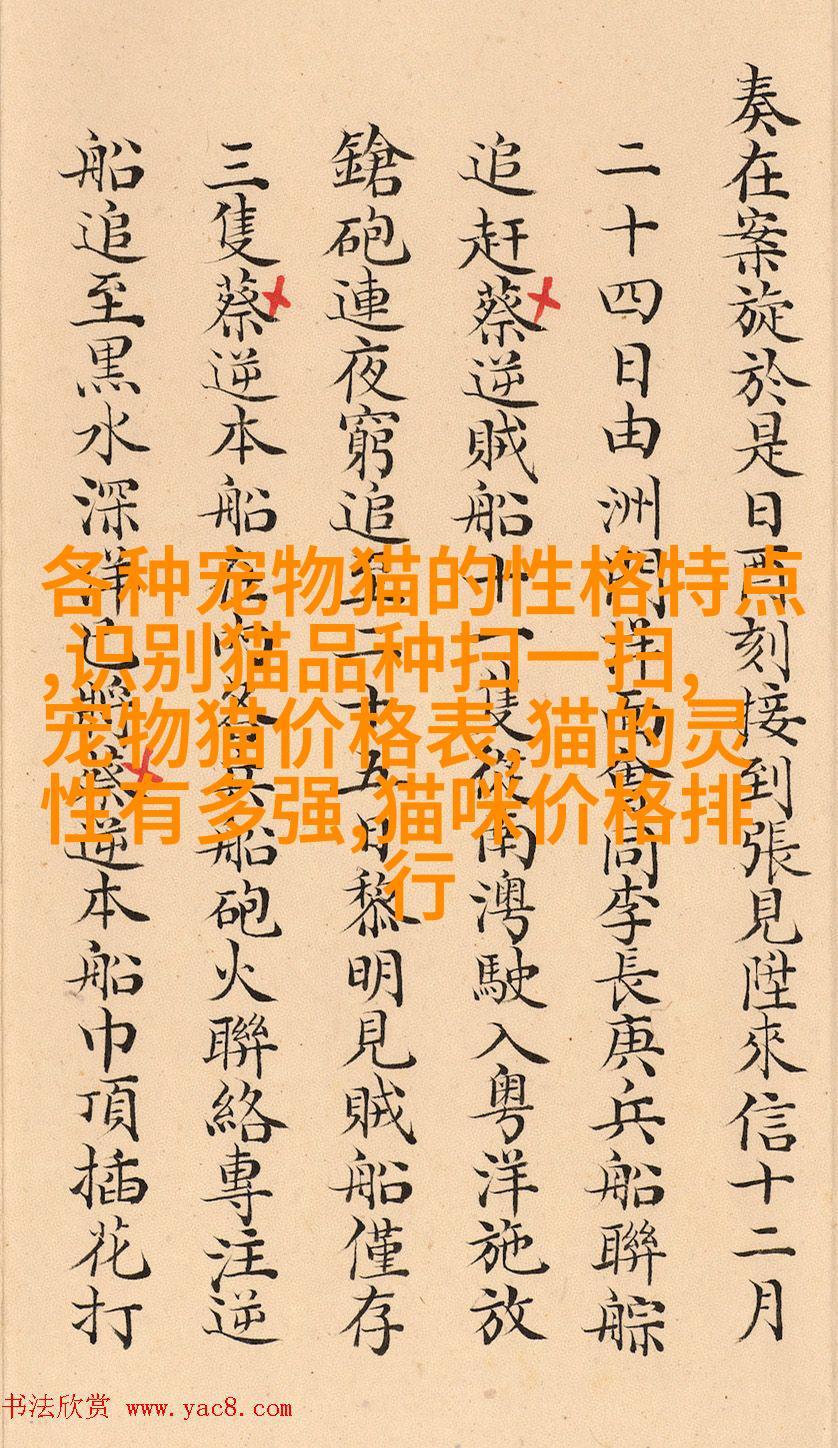 奏在案旋於是日酉刻接到張見陞來信十二月
二十四日由洲面會同李長庚兵船聯䑸
追赶蔡逆賊船十一隻從南澳駛入粤洋施放
鎗砲連夜窮追至二十五日黎明見賊船僅存
三隻蔡逆本船在內各兵船砲火聯絡專注逆
船追至黒水深洋已將蔡逆本船巾頂插花打
各种宠物猫的性格特点
,识别猫品种扫一扫,
宠物猫价格表,猫的灵
性有多强,猫咪价格排
行
书法欣赏 www.yac8.com